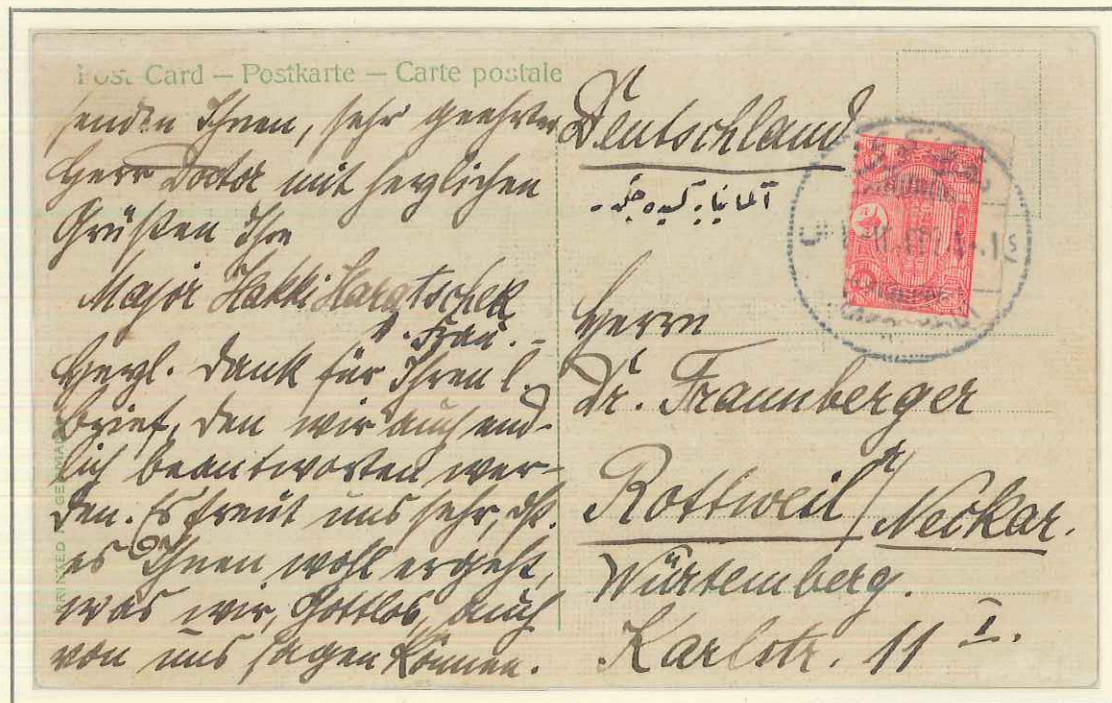 Post Card – Postkarte – Carte postale
senden Ihnen, sehr geehrter
Herr Doctor mit herzlichen
Grüßen Ihre
Major Hakki
u. Frau. –
Herzl. Dank für Ihren l.
Brief, den wir auch end-
lich beantworten wer-
den. Es freut uns sehr, dß.
es Ihnen wohl ergeht,
was wir, Gottlob, auch
von uns sagen können.
PRINTED IN GERMANY
Deutschland
آلمانيايه كيده جكدر
Herrn
Dr. Fraunberger
Rottweil a/Neckar.
Würtemberg.
Karlstr. 11 I.